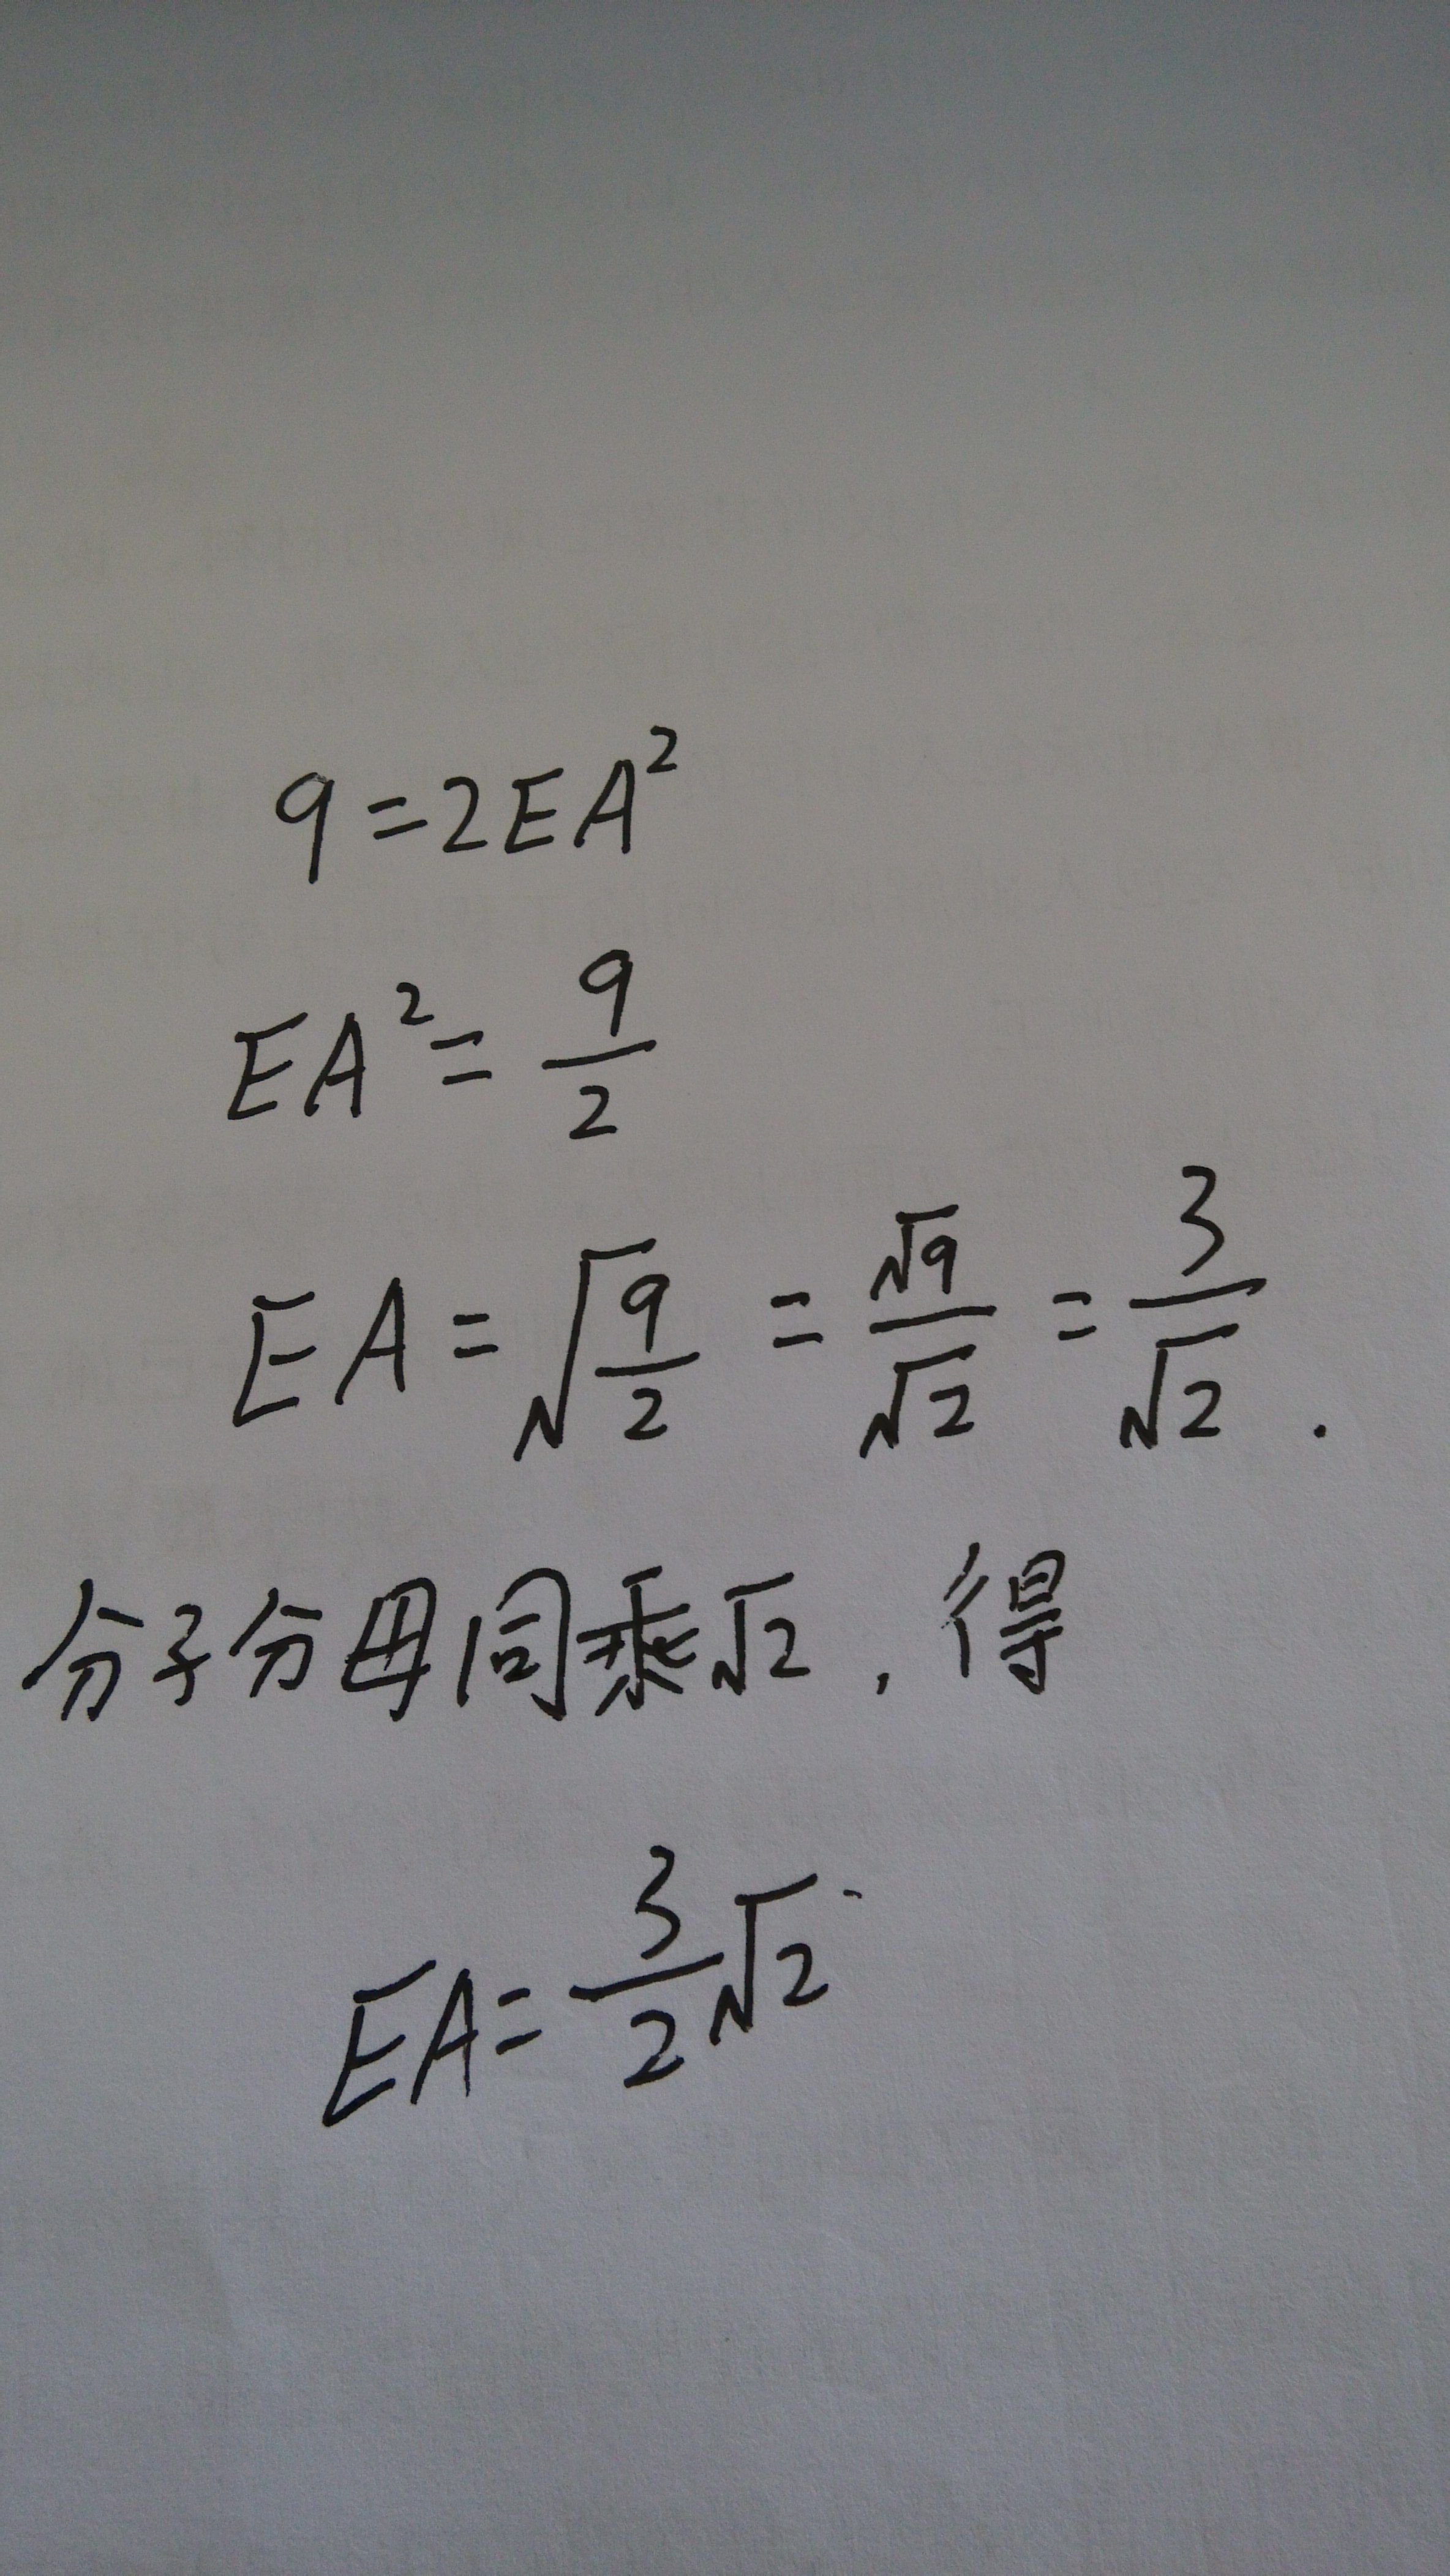 9=2EA²
EA²=9/2
EA=√(9/2)=√9/√2=3/√2.
分子分母同乘√2,得
EA=3/2√2